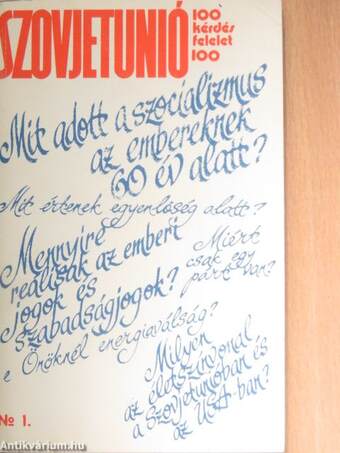 SZOVJETUNIÓ
100 kérdés
felelet 100
Mit adott a szocializmus
az embereknek
60 év alatt?
Mit értenek egyenlőség alatt?
Mennyire
reálisak az emberi
jogok és
szabadságjogok?
Miért
csak egy
párt van?
e Önöknél energiaválság?
Milyen
az életszínvonal
a Szovjetunióban és
az USA-ban?
№ 1.
Antikvárium.hu